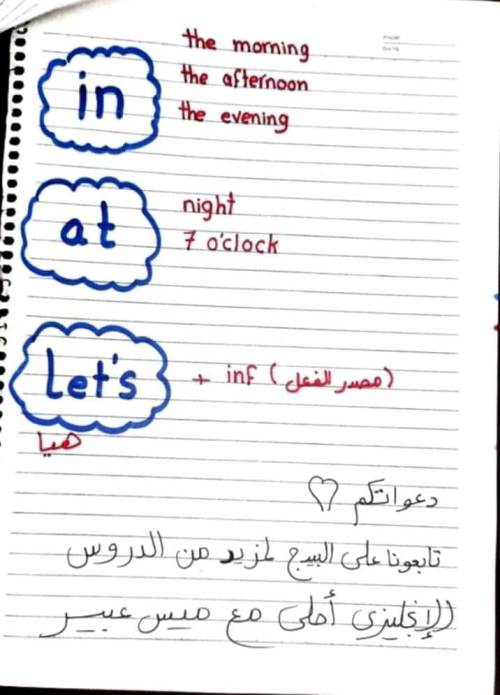 in
the morning
the afternoon
the evening
at
night
7 o'clock
Let's
+ inf (مصدر الفعل)
هيا
دعواتكم ♡
تابعونا على البيج لمزيد من الدروس
((الإنجليزي أحلى مع ميس عبير